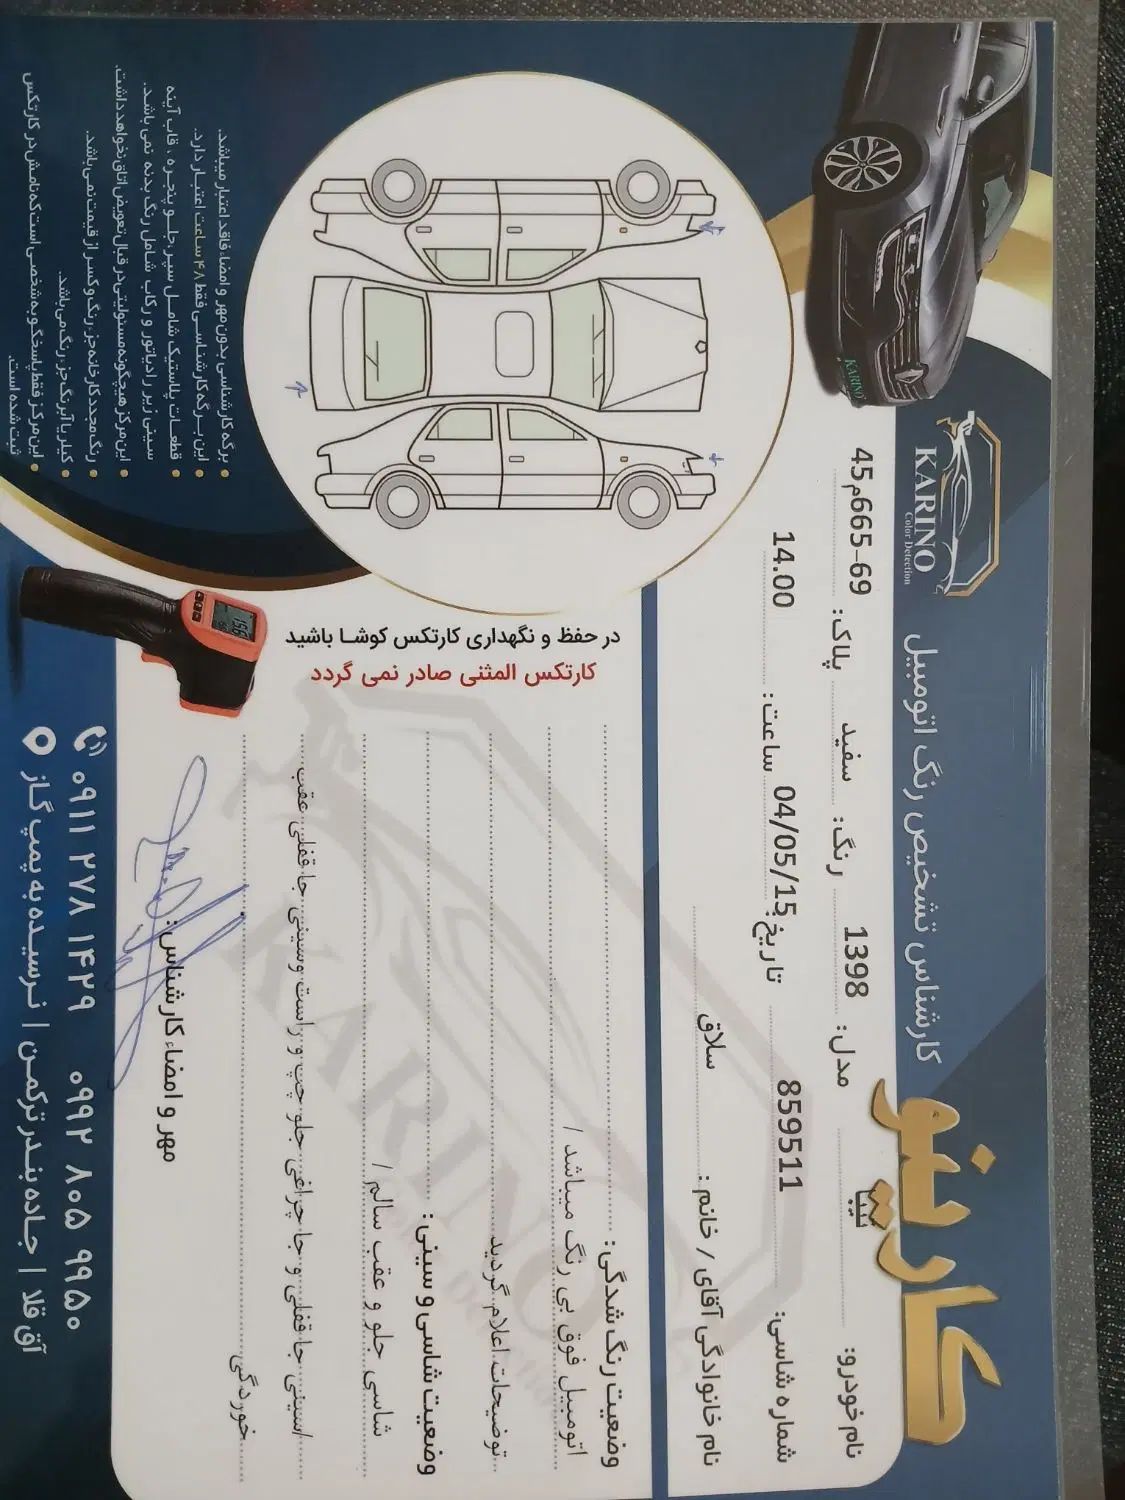 کارینو
کارشناس تشخیص رنگ اتومبیل
KARINO
Color Detection
KARINO
نام خودرو: تیبا مدل: 1398 رنگ: سفید پلاک: 69-665م45
شماره شاسی: 859511 تاریخ: 04/05/15 ساعت: 14.00
نام خانوادگی آقای / خانم: سلاق
وضعیت رنگ شدگی:
اتومبیل فوق بی رنگ میباشد /
توضیحات اعلام گردید
وضعیت شاسی و سینی:
شاسی جلو و عقب سالم /
/سینی جا قفلی و جا چراغی جلو چپ و راست وسینی جا قفلی عقب
خوردگی
مهر و امضاء کارشناس:
در حفظ و نگهداری کارتکس کوشا باشید
کارتکس المثنی صادر نمی گردد
برگه کارشناسی بدون مهر و امضاء فاقد اعتبار میباشد.
این برگه کارشناسی فقط ۴۸ ساعت اعتبار دارد.
قطعات پلاستیک شامل سپر جلو پنجره ، قاب آینه
سینی زیر رادیاتور و رکاب شامل رنگ بدنه نمی باشد.
این مرکز هیچگونه مسئولیتی در قبال تعویض اتاق نخواهد داشت.
رنگ مجدد کارخانه جزء رنگ و کسر از قیمت نمی باشد.
کیلر یا آبرنگ جزء رنگ می باشد.
این مرکز فقط پاسخگو به شخصی است که نامش در کارتکس
ثبت شده است.
۰۹۱۱ ۲۷۸ ۱۴۲۹ ۰۹۹۲ ۸۰۵ ۹۹۵۰
آق قلا | جاده بندر ترکمن | نرسیده به پمپ گاز